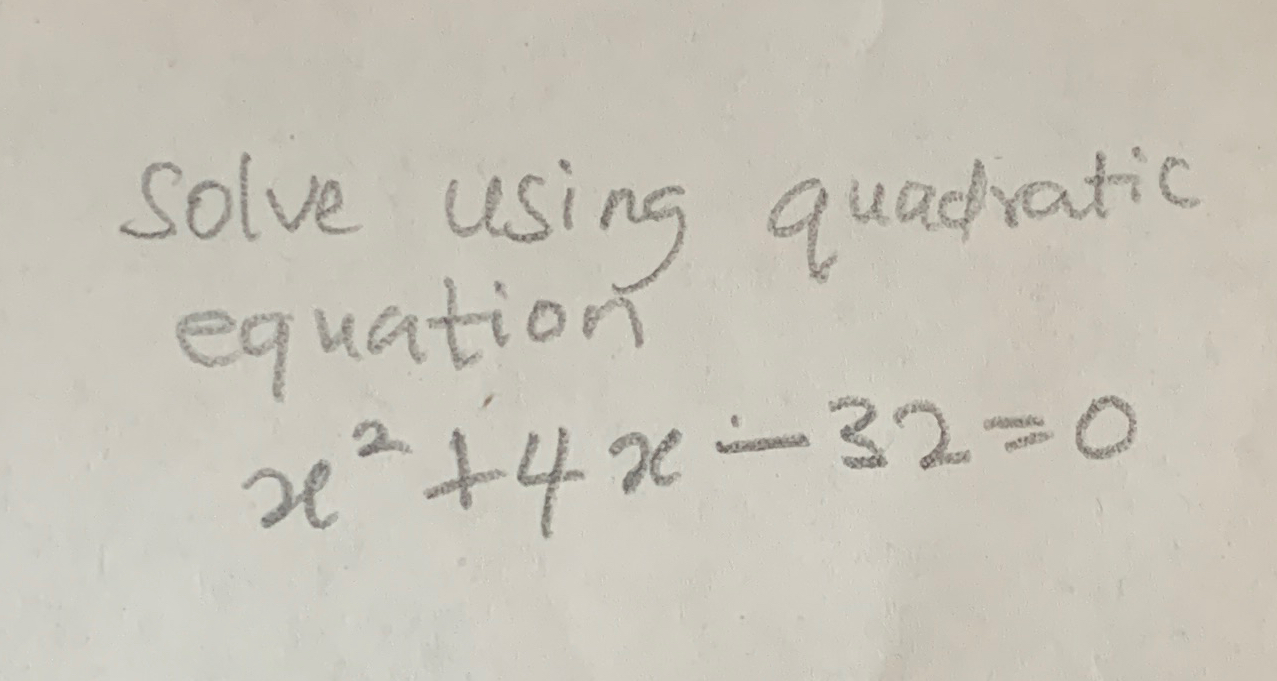 Solve using quadratic
equation
x² + 4x - 32 = 0